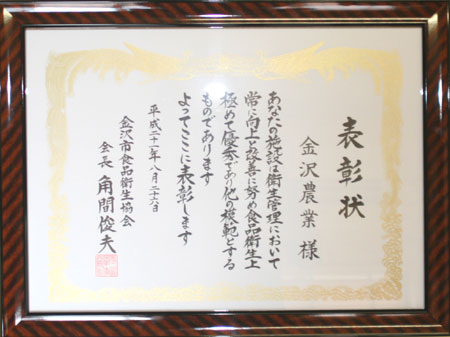 表彰状
金沢農業 様
あなたの施設は衛生管理において
常に向上と改善に努め食品衛生上
極めて優秀であり他の模範とする
ものであります
よってここに表彰します
平成二十一年八月二十六日
金沢市食品衛生協会
会長 角間俊夫